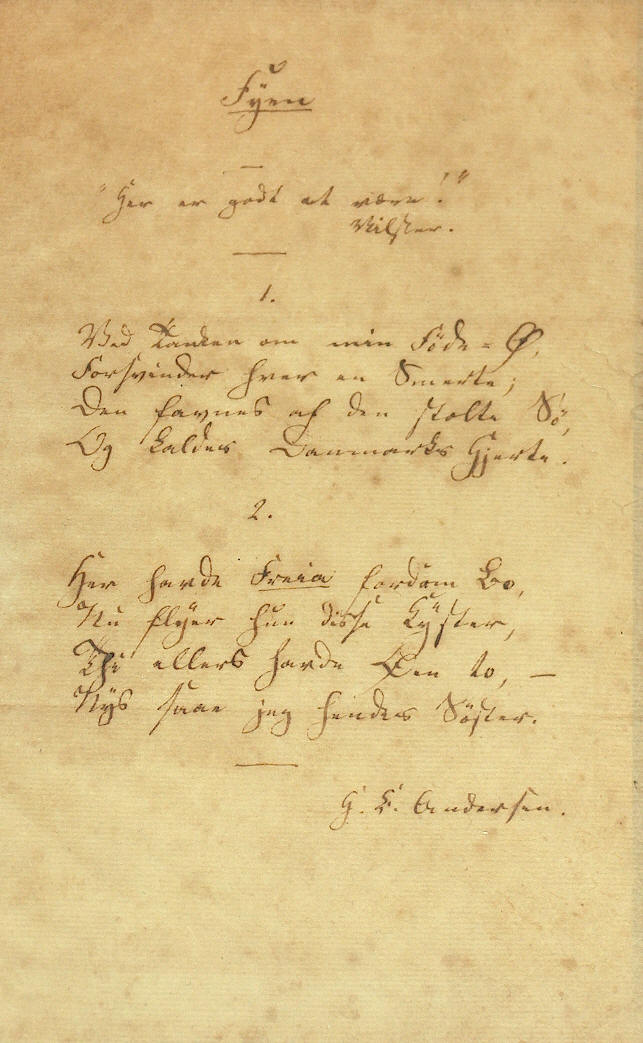 Fyen
"Her er godt at være!"
Wilster.
1.
Ved Tanken om min Føde=Ø,
Forsvinder hver en Smerte;
Den favnes af den stolte Sø,
Og kaldes Danmarks Hjerte.
2.
Her havde Freia fordom Bo,
Nu flyer hun disse Kyster,
Thi ellers havde Øen to, —
Nys saae jeg hendes Søster.
H. C. Andersen.